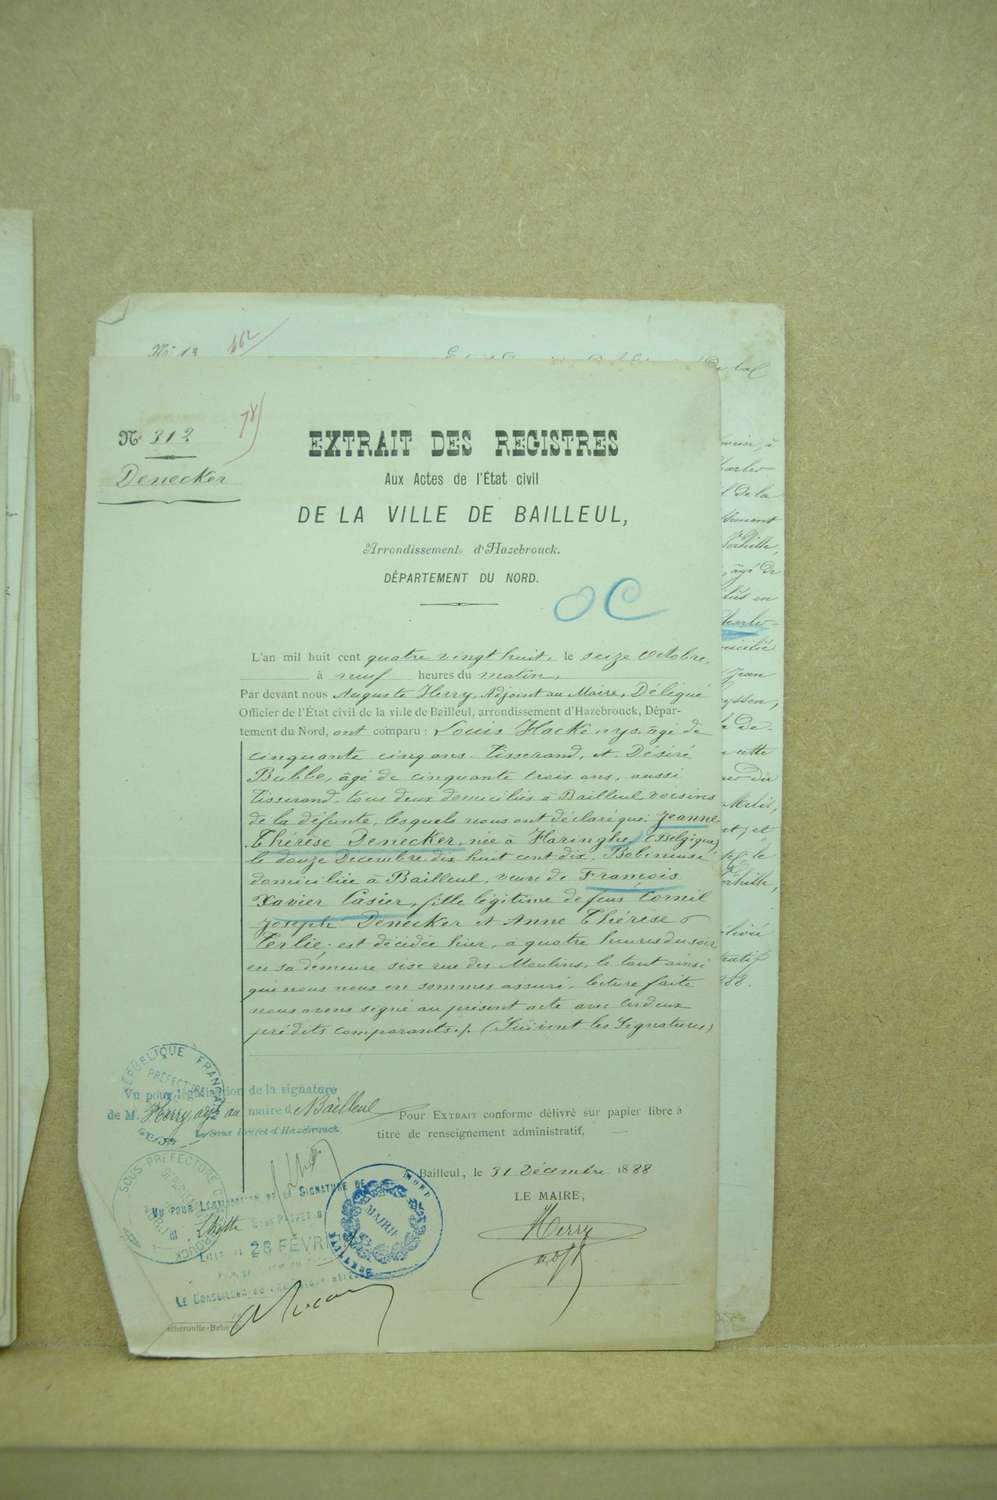 N° 13 162
N° 312
78
Denecker
EXTRAIT DES REGISTRES
Aux Actes de l'État civil
DE LA VILLE DE BAILLEUL,
Arrondissement d'Hazebrouck.
DÉPARTEMENT DU NORD.
OC
L'an mil huit cent quatre vingt huit, le seize Octobre,
à neuf heures du matin,
Par devant nous Auguste Herry, Adjoint au Maire, Délégué
Officier de l'État civil de la ville de Bailleul, arrondissement d'Hazebrouck, Dépar-
tement du Nord, ont comparu : Louis Hacke nys âgé de
cinquante cinq ans, Tisserand, et Désiré
Bubbe, âgé de cinquante trois ans, aussi
Tisserand, tous deux domiciliés à Bailleul, voisins
de la défunte, lesquels nous ont déclaré que Jeanne
Thérèse Denecker, née à Haringhe (Belgique)
le douze Décembre dix huit cent dix, Bobineuse
domiciliée à Bailleul, veuve de François
Xavier Casier, fille légitime de feus Cornil
Joseph Denecker et Anne Thérèse
Terlie; est décédée hier, à quatre heures du soir
en sa demeure sise rue des Moulins, le tout ainsi
que nous nous en sommes assuré, lecture faite
nous avons signé au présent acte avec les deux
prédits comparants ./. (Suivent les Signatures)
RÉPUBLIQUE FRANÇAISE
Vu pour légalisation de la signature
de M. Herry adjt au maire d Bailleul
Le Sous Préfet d'Hazebrouck
Pour EXTRAIT conforme délivré sur papier libre à
titre de renseignement administratif,
Bailleul, le 31 Décembre 1888
LE MAIRE,
Herry
adjt
SOUS-PRÉFECTURE
VU POUR LÉGALISATION DE LA SIGNATURE DE
M SOUS PRÉFET
LILLE LE 28 FÉVRI
LE CONSEILLER DE
MAIRIE
NORD